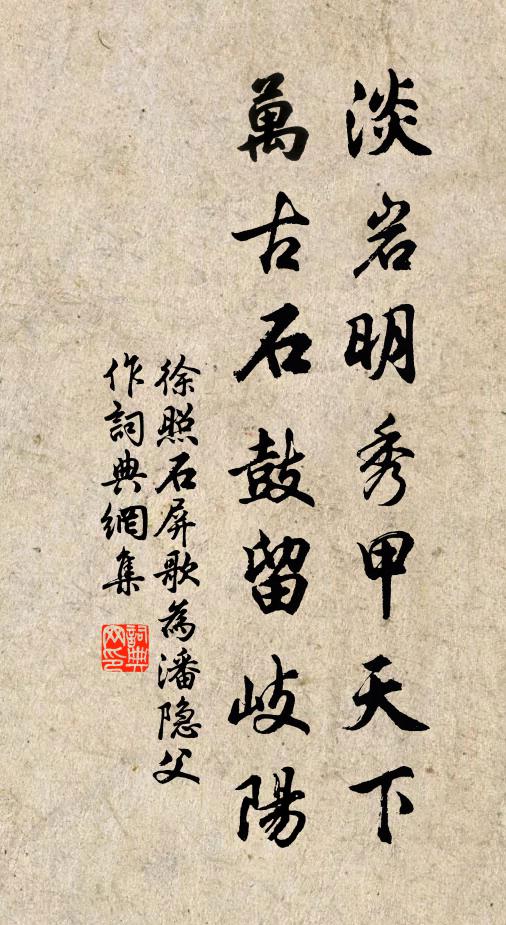 淡岩明秀甲天下
萬古石鼓留岐陽
徐照石屏歌為潘隐父
作詞典網集
詞典网印